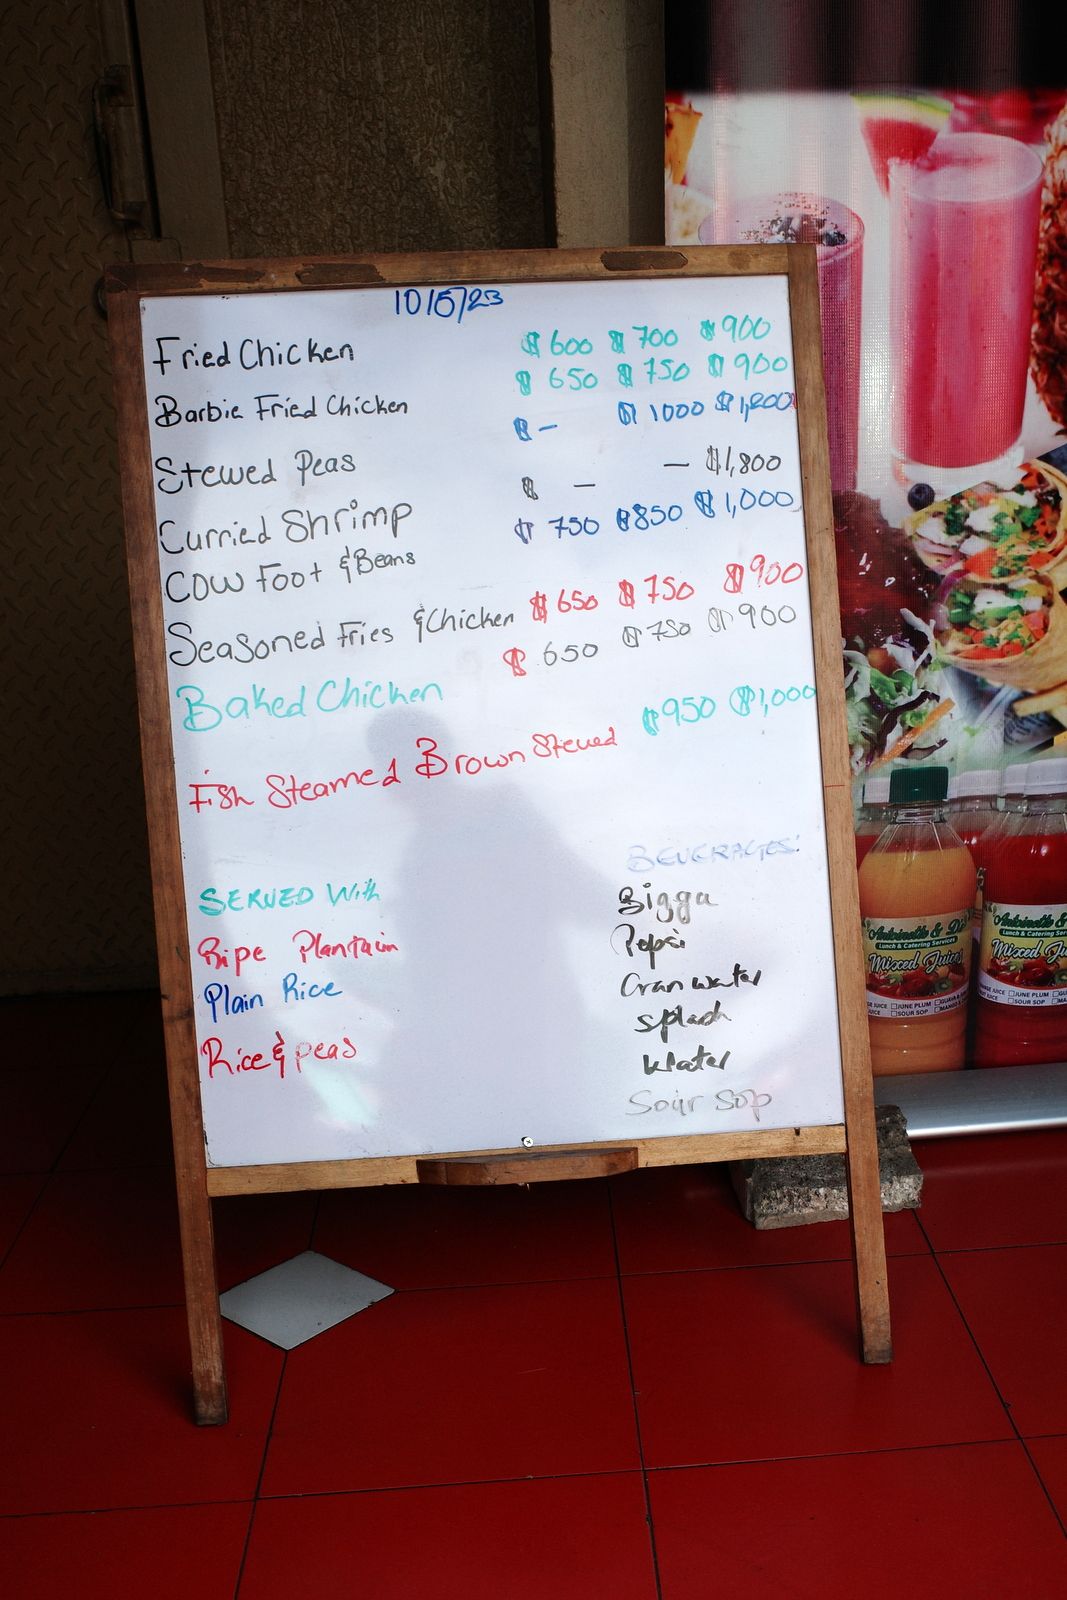 10/5/23
Fried Chicken $600 $700 $900
Barbie Fried Chicken $650 $750 $900
Stewed Peas $- $1000 $1,200
Curried Shrimp $ - - $1,800
Cow Foot & Beans $750 $850 $1,000
Seasoned Fries & Chicken $650 $750 $900
Baked Chicken $650 $750 $900
Fish Steamed Brown Stewed $950 $1,000
SERVED With
Ripe Plantain
Plain Rice
Rice & peas
BEVERAGES:
Bigga
Pepsi
Cran water
splash
Water
Sour Sop
Antoinette & Di
Lunch & Catering Services
Mixed Juices
JUICE JUNE PLUM GUAVA
SOUR SOP
Antoinette &
Lunch & Catering Ser
Mixed Ju
JUICE JUNE PLUM
SOUR SOP